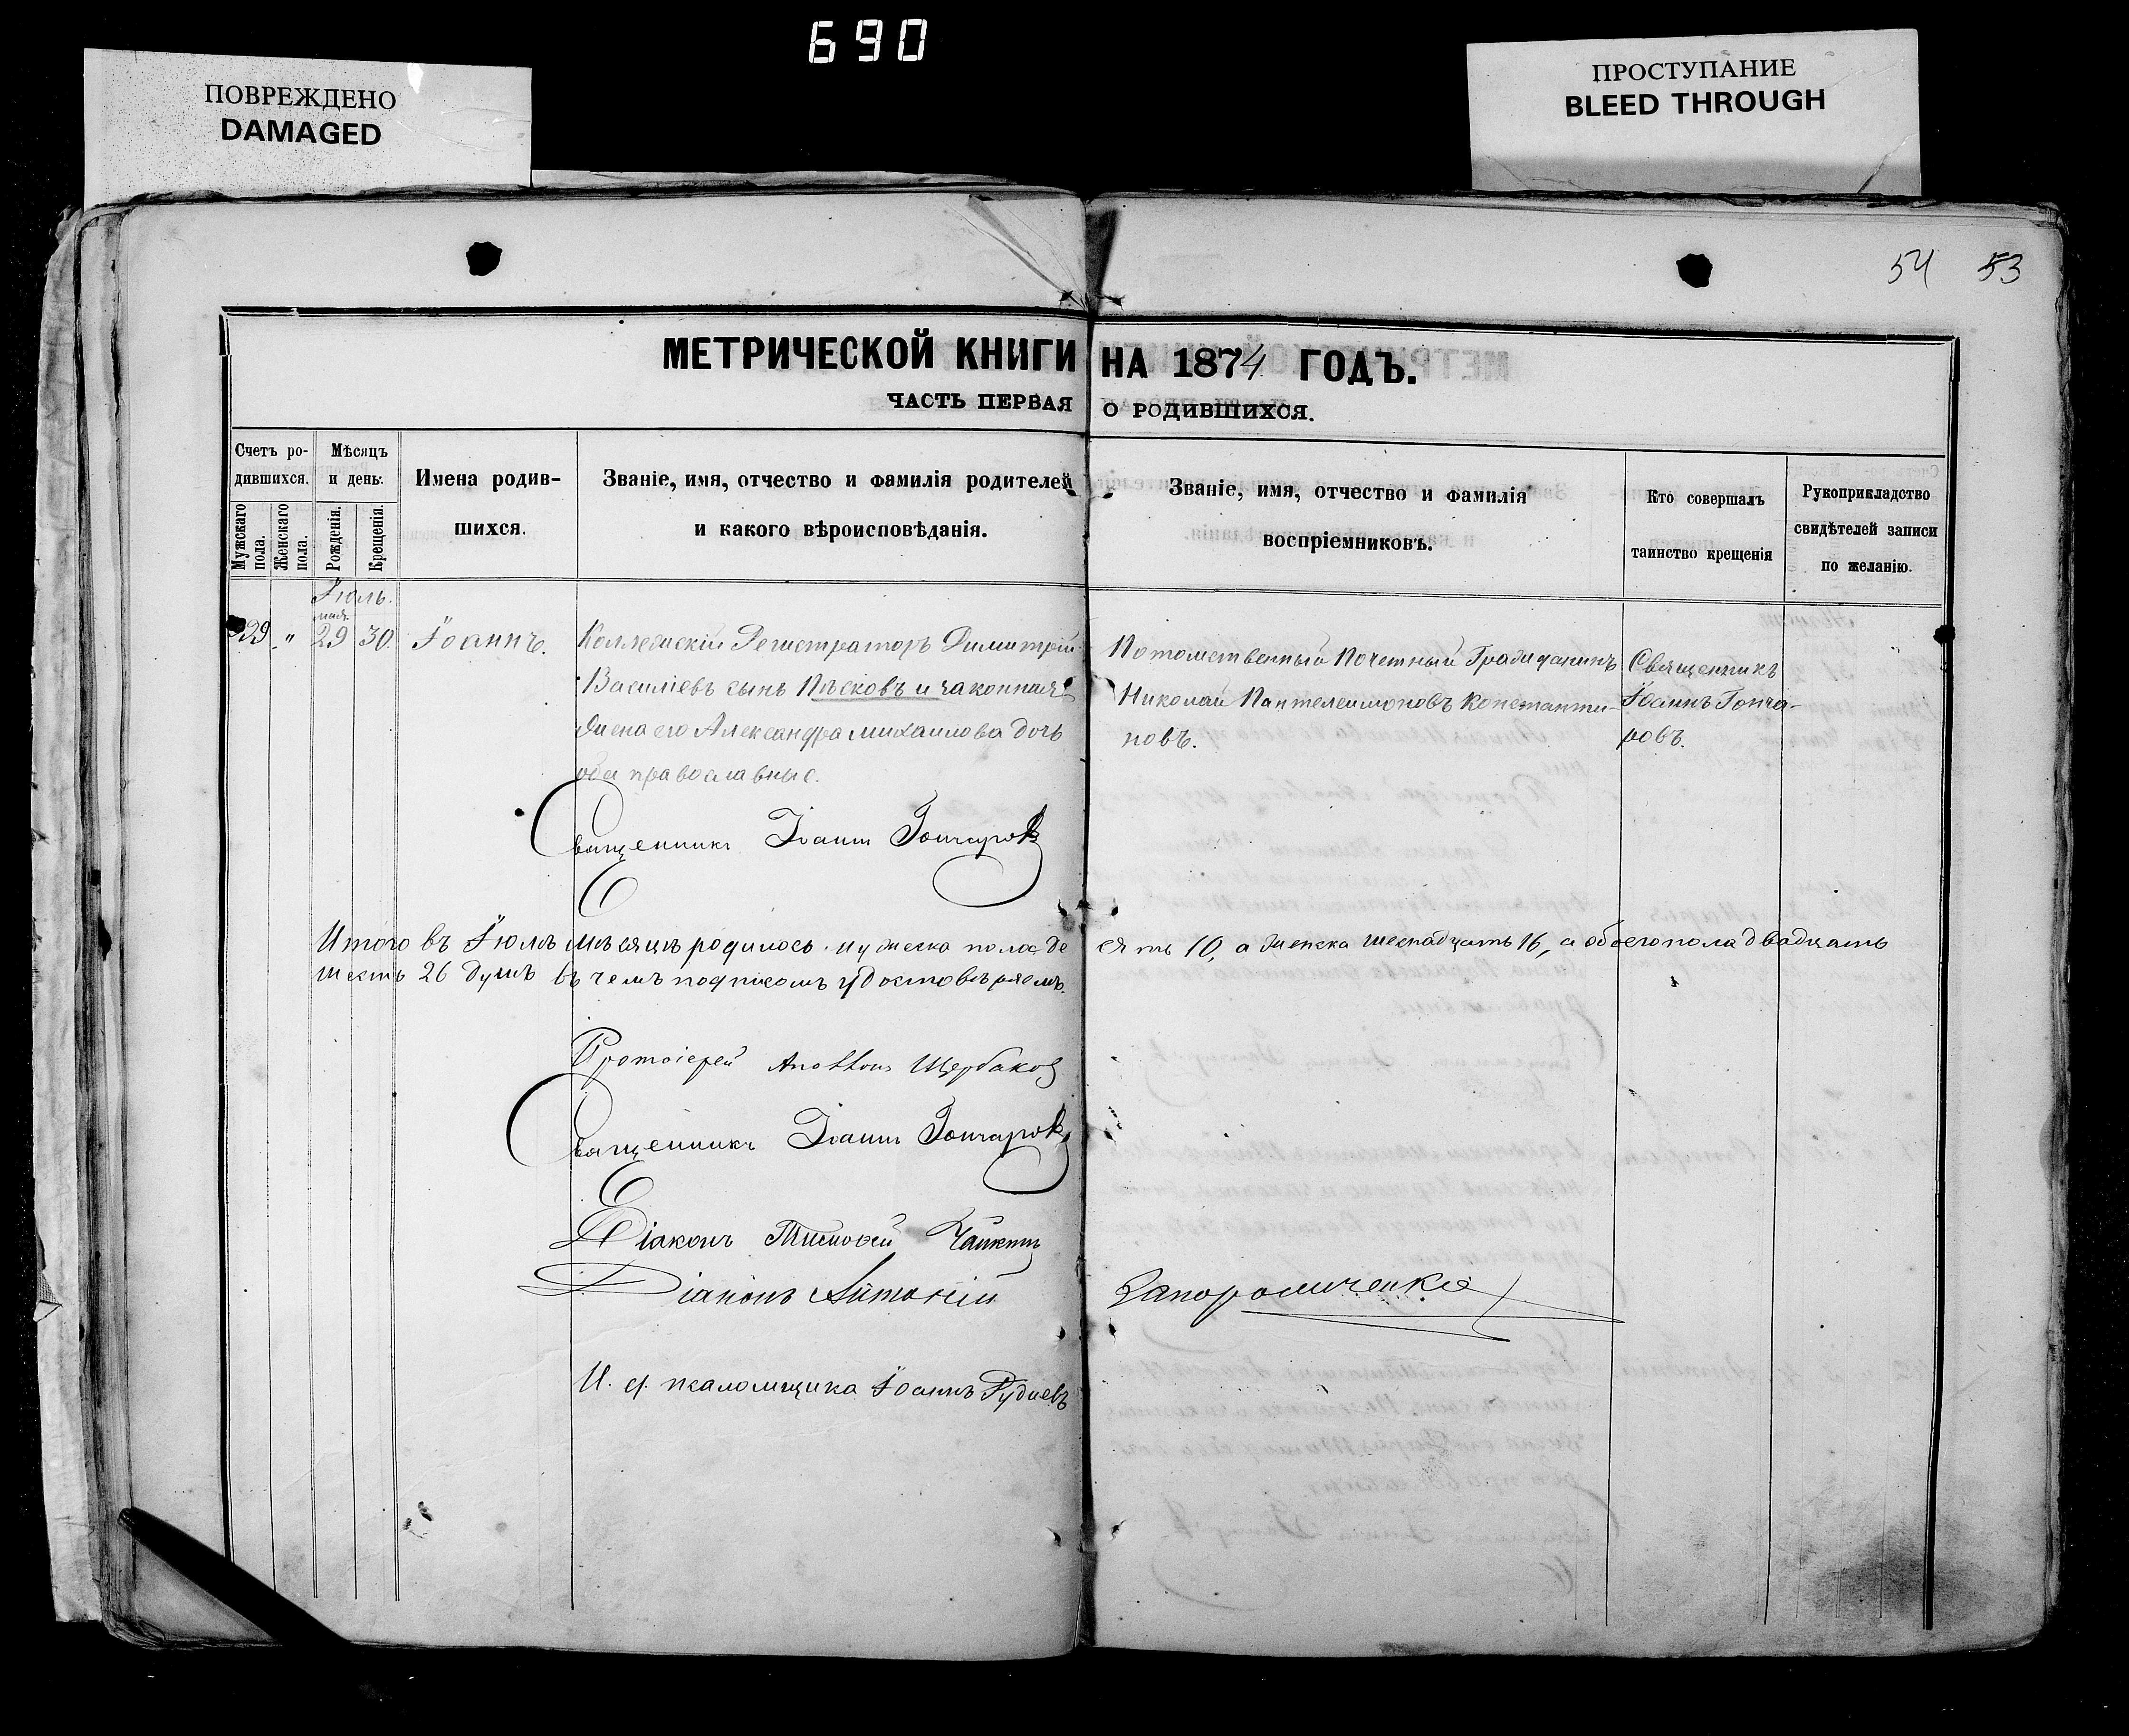 690
ПОВРЕЖДЕНО
DAMAGED
ПРОСТУПАНИЕ
BLEED THROUGH
54 53
МЕТРИЧЕСКОЙ КНИГИ НА 1874 ГОДЪ.
ЧАСТЬ ПЕРВАЯ О РОДИВШИХСЯ.
Счетъ ро-
дившихся.
Мужскаго пола.
Женскаго пола.
Мѣсяцъ
и день.
Рожденія.
Крещенія.
Имена родив-
шихся.
Званіе, имя, отчество и фамилія родителей
и какого вѣроисповѣданія.
Званіе, имя, отчество и фамилія
воспріемниковъ.
Кто совершалъ
таинство крещенія
Рукоприкладство
свидѣтелей записи
по желанію.
Іюль.
29 " 29 30 Іоаннъ.
Коллежскій Регистраторъ Димитрій
Василіевъ сынъ Пѣсковъ и законная
жена его Александра Михаилова дочь
оба православные.
Потомственный Почетный Гражданинъ
Николай Пантелеимоновъ Константи-
новъ.
Священникъ
Іоаннъ Гонча-
ровъ.
Священникъ Іоаннъ Гончаровъ
Итого въ Іюлѣ мѣсяцѣ родилось мужеска пола де сять 10, а женска шеснадцать 16, а обоего пола двадцать
шесть 26 душъ въ чемъ подписомъ удостовѣряемъ.
Протоіерей Щербаковъ
Священникъ Іоаннъ Гончаровъ
Діаконъ Тимоѳей
Діаконъ Антоній Запорожченко
И. д. псаломщика Іоаннъ Рудневъ